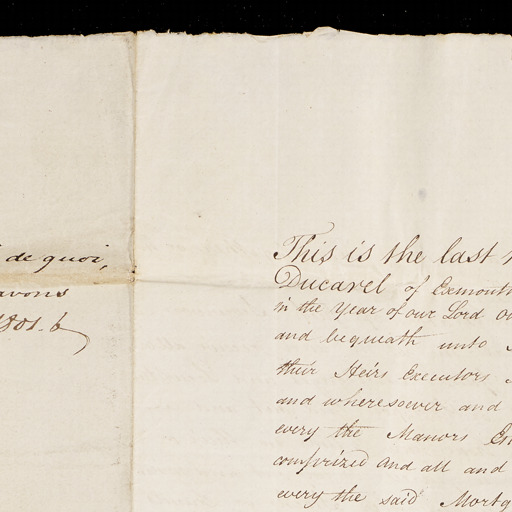 de quoi,
avons
1801. b
This is the last
Ducarel of Exmouth
in the Year of our Lord
and bequeath unto
their Heirs Executors
and wheresoever and
every the Manors
comprized and all and
every the said Mortg